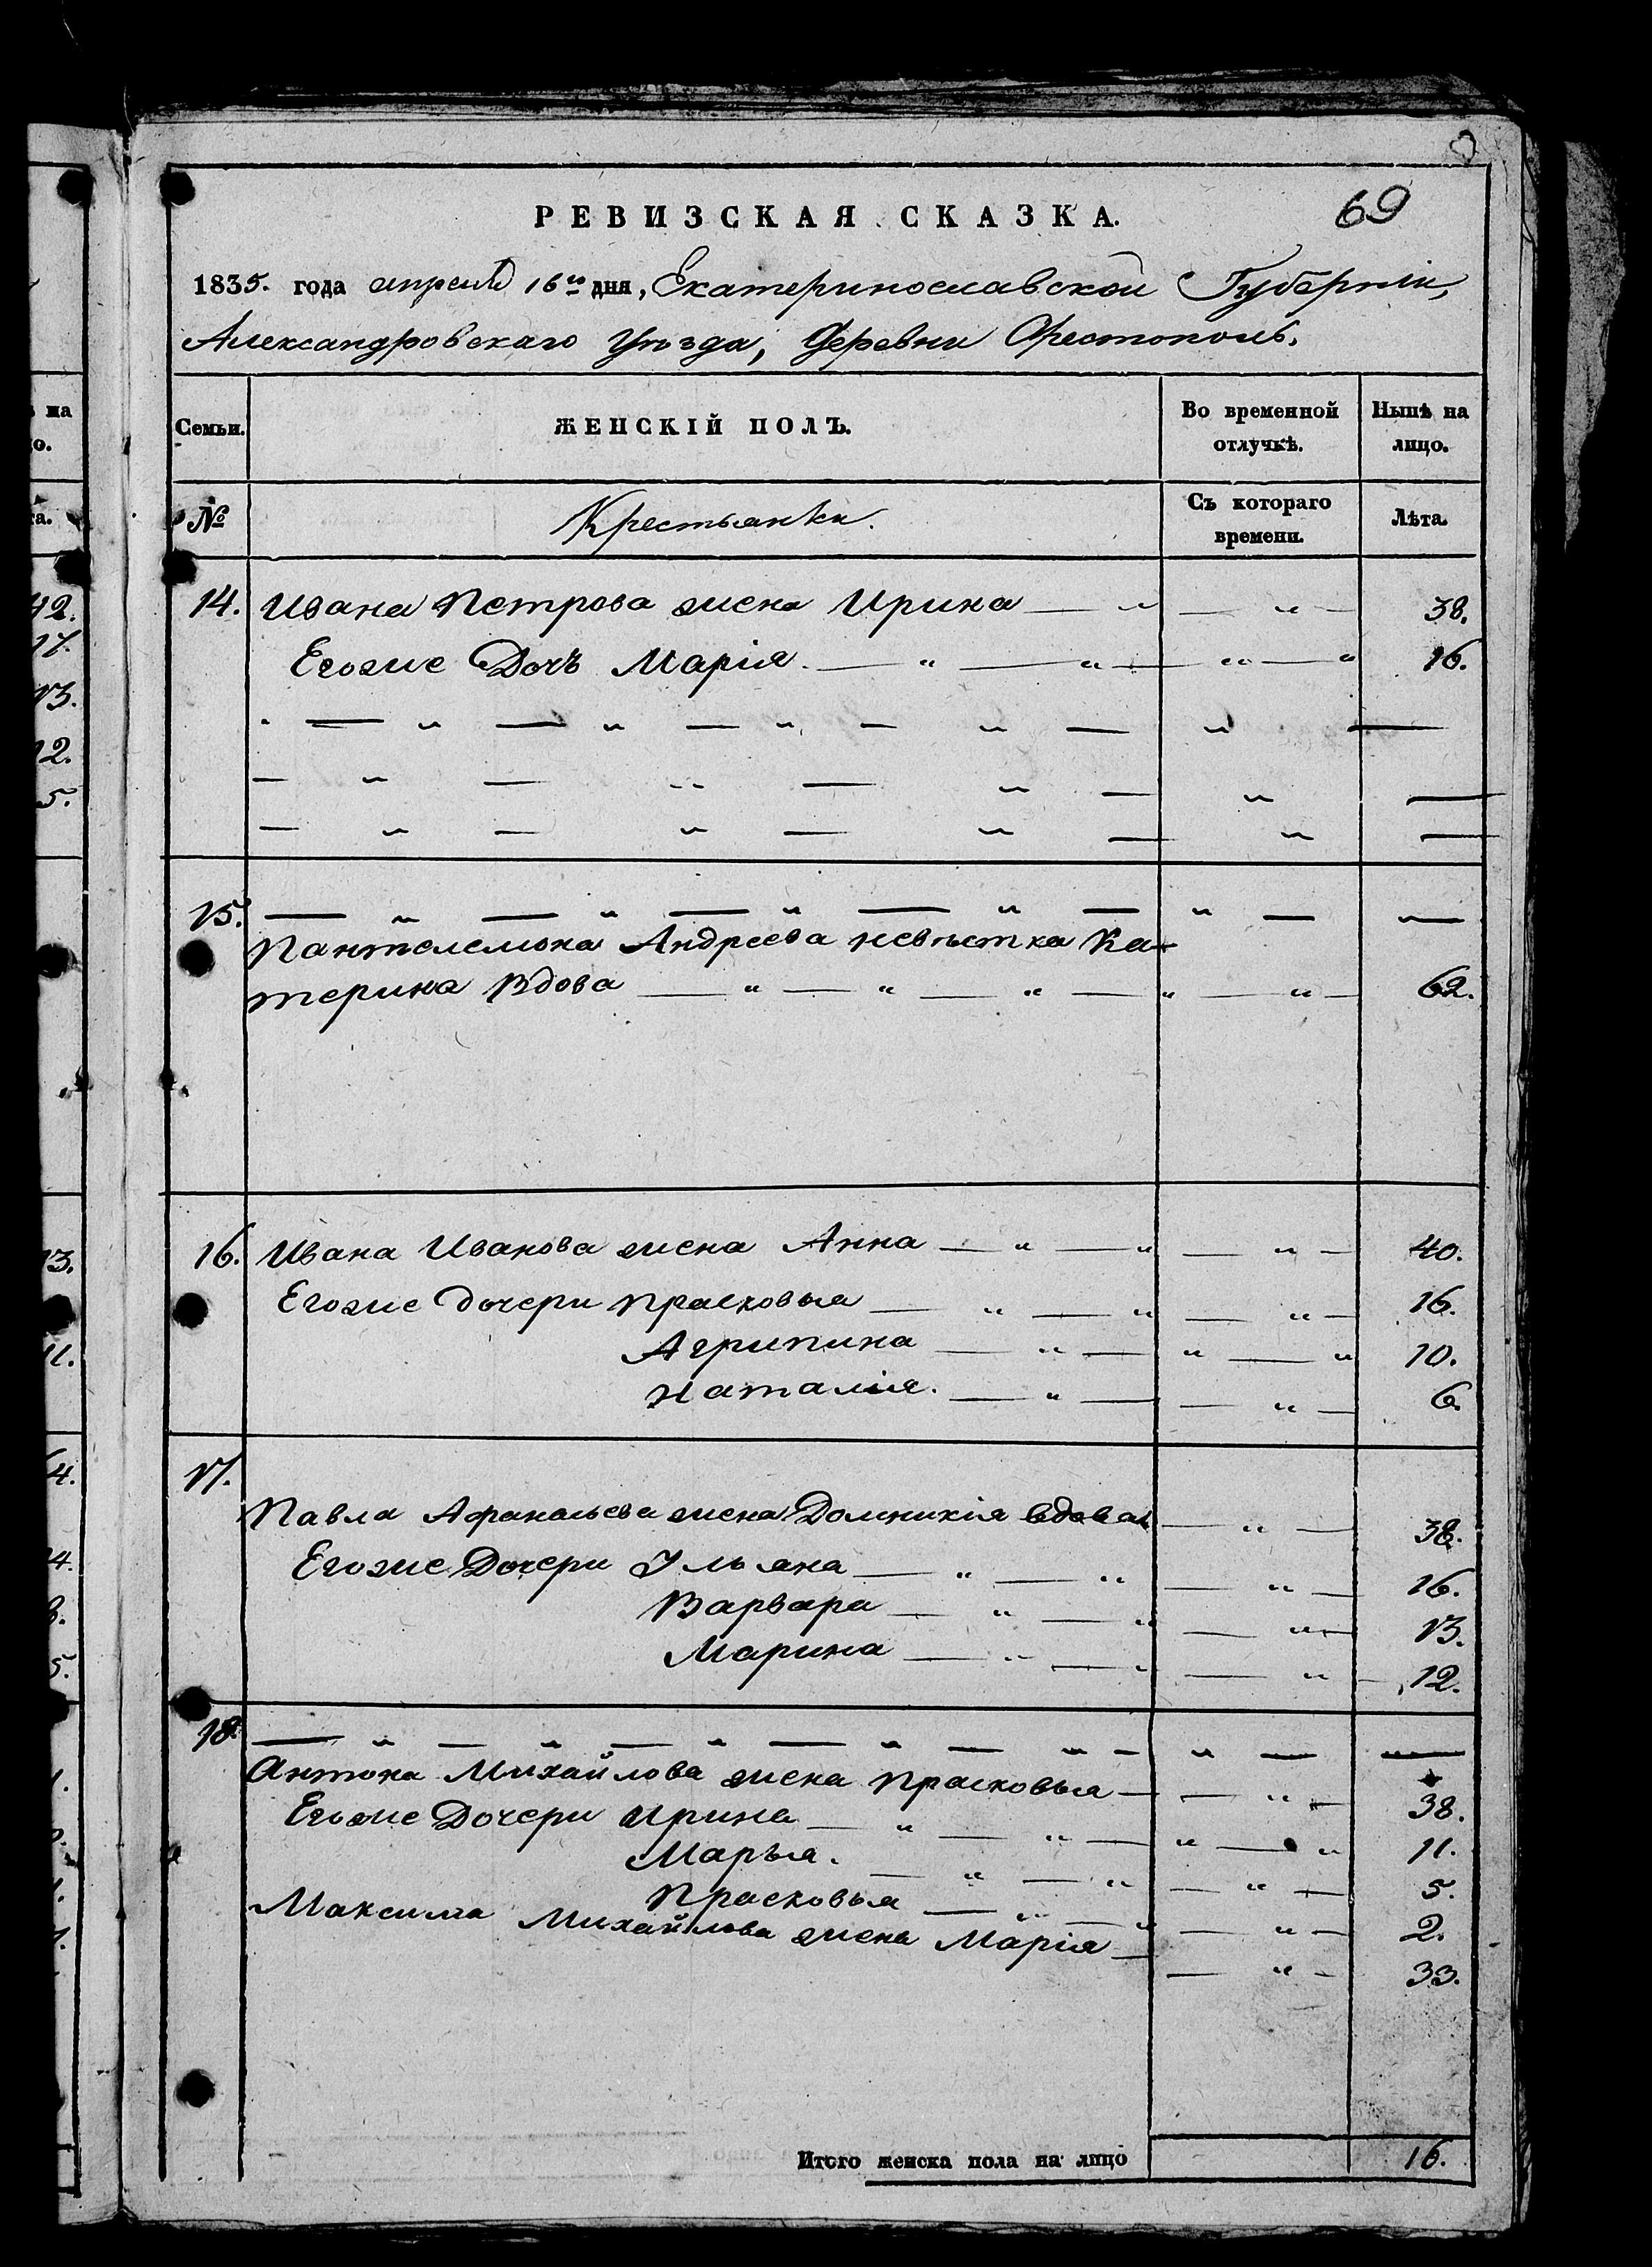 69
РЕВИЗСКАЯ СКАЗКА.
1835. года апреля 16го дня, Екатеринославской Губерніи,
Александровскаго Уѣзда, Деревни Орестополь.
Семьи.
ЖЕНСКІЙ ПОЛЪ.
Во временной отлучкѣ.
Нынѣ на лицо.
№
Крестьянки.
Съ котораго времени.
Лѣта.
14. Ивана Петрова жена Ирина — " — " — 38.
Егоже Дочь Марія. — " — " — " — " 16.
15. — " — " — " — " — " — —
Пантелемона Андреева невѣстка Ка-
терина Вдова — " — " — " — " — " — 62.
16. Ивана Иванова жена Анна — " — " — " — 40.
Егоже дочери Прасковья — " — " — " — 16.
Агрипина — " — " — " 10.
Наталія. — " — — " — 6.
17.
Павла Афанасьева жена Домникія вдова — " — 38.
Егоже Дочери Ульяна — " — " — " — 16.
Варвара — " — " — " — 13.
Марина — " — " — " — 12.
18. — " — " — " — " — " — " — —
Антона Михайлова жена Прасковья — — " — 38.
Егоже Дочери Ирина — " — " — " — " 11.
Марья. — " — " — " — 5.
Прасковья — " — " — " — 2.
Максима Михайлова жена Марія — — " — 33.
Итого женска пола на лицо 16.
42.
17.
13.
12.
5.
13.
11.